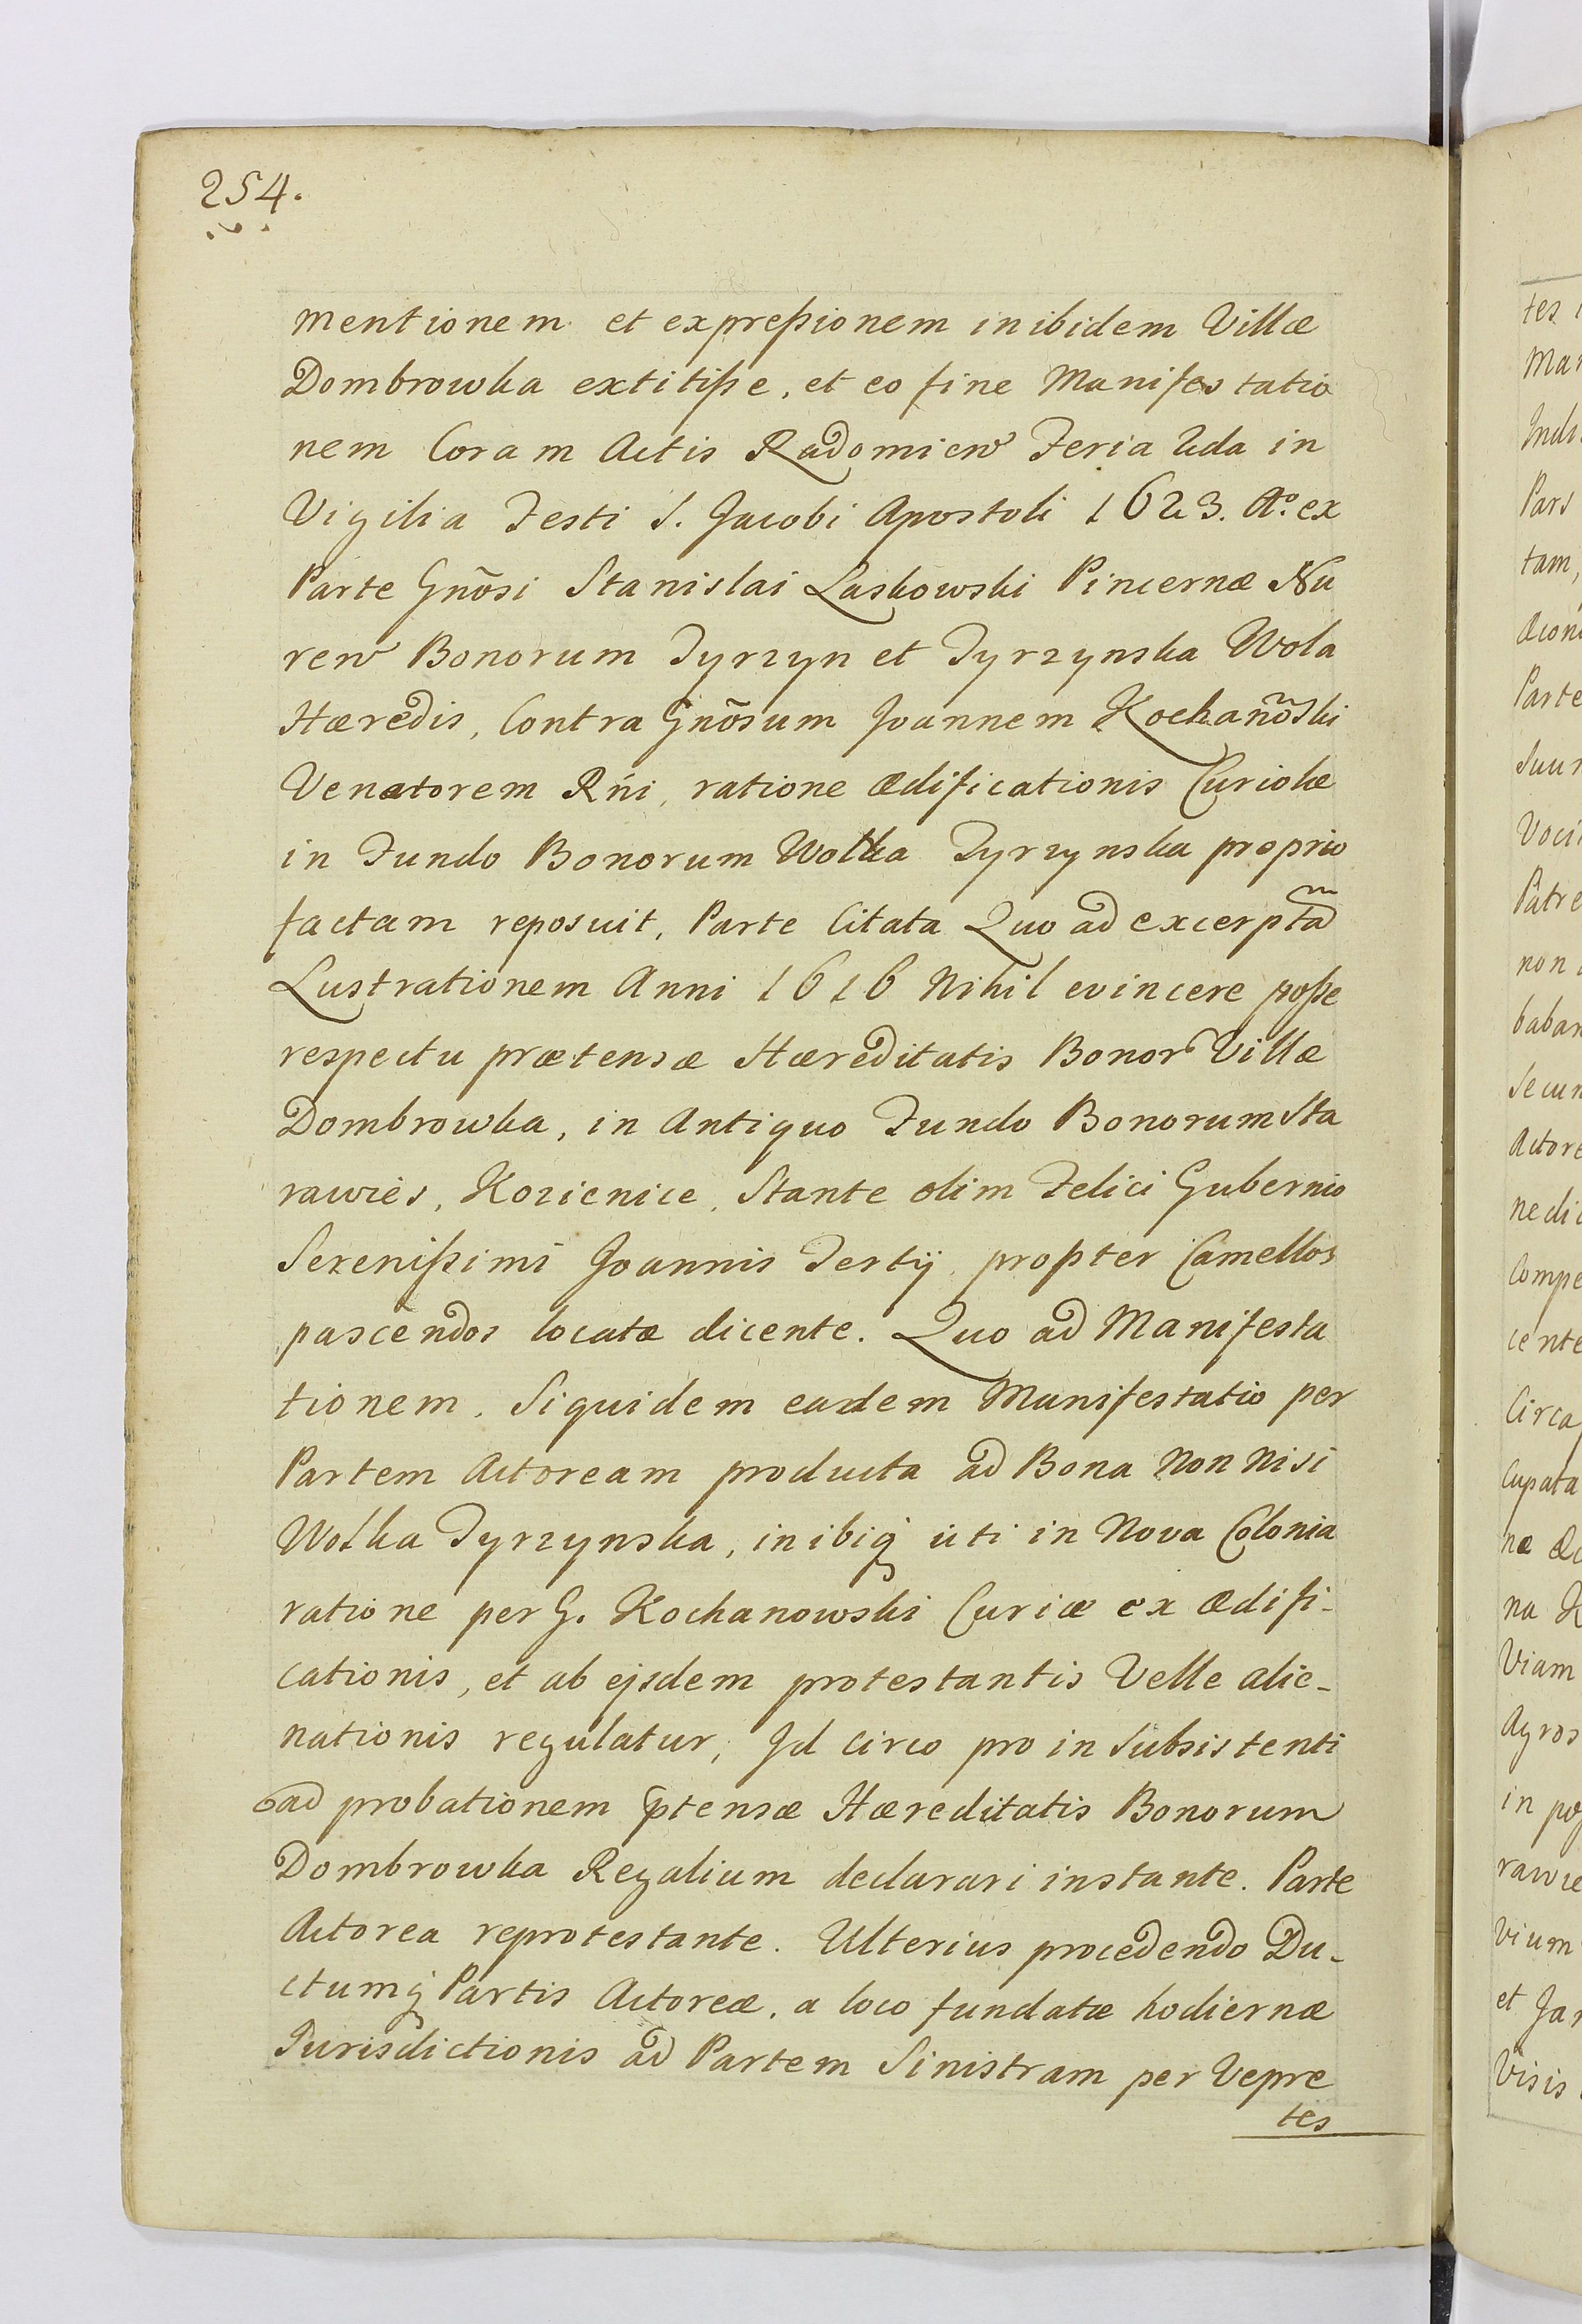 254.
mentionem et expreßionem inibidem Villæ
Dombrowka extitiße, et eo fine Manifestatio
nem Coram Actis Radomien Feria 2da in
Vigilia Festi S. Jacobi Apostoli 1623. Ao. ex
Parte Gnõsi Stanislai Laskowski Pincernæ Nu
ren Bonorum Tyrzyn et Tyrzynska Wola
Hæredis, Contra Gnõsum Joannem Kochanõski
Venatorem Rńi, ratione ædificationis Curiolæ
in Fundo Bonorum Wolka Tyrzynska proprio
factam reposuit, Parte Citata Quo ad excerptã
Lustrationem Anni 1616 Nihil evincere poße
respectu prætensæ Hæreditatis Bonor Villæ
Dombrowka, in Antiquo Fundo Bonorum Sta
rawies, Kozienice, Stante olim Felici Gubernio
Serenißimi Joannis Tertij, propter Camellos
pascendos locatæ dicente. Quo ad Manifesta
tionem, Siquidem eadem Manifestatio per
Partem Actoream producta ad Bona Non Nisi
Wolka Tyrzynska, inibiq; uti in Nova Colonia
ratione per G. Kochanowski Curiæ ex ædifi-
cationis, et ab ejsdem protestantis Velle alie-
nationis regulatur, Id circo pro in Subsistenti
ad probationem ptensæ Hæreditatis Bonorum
Dombrowka Regalium declarari instante. Parte
Actorea reprotestante. Ulterius procedendo Du-
ctumq; Partis Actoreæ, a loco fundatæ hodiernæ
Jurisdictionis ad Partem Sinistram per Vepre
tes
tes
Mar
Indu
Pars
tam,
Parte
Suu
Voci
Pãtre
non
baban
Secun
Actore
nedic
Compe
cente
Circa
cupata
na K
Viam
Agros
in
rawie
vium
et Jan
Visis